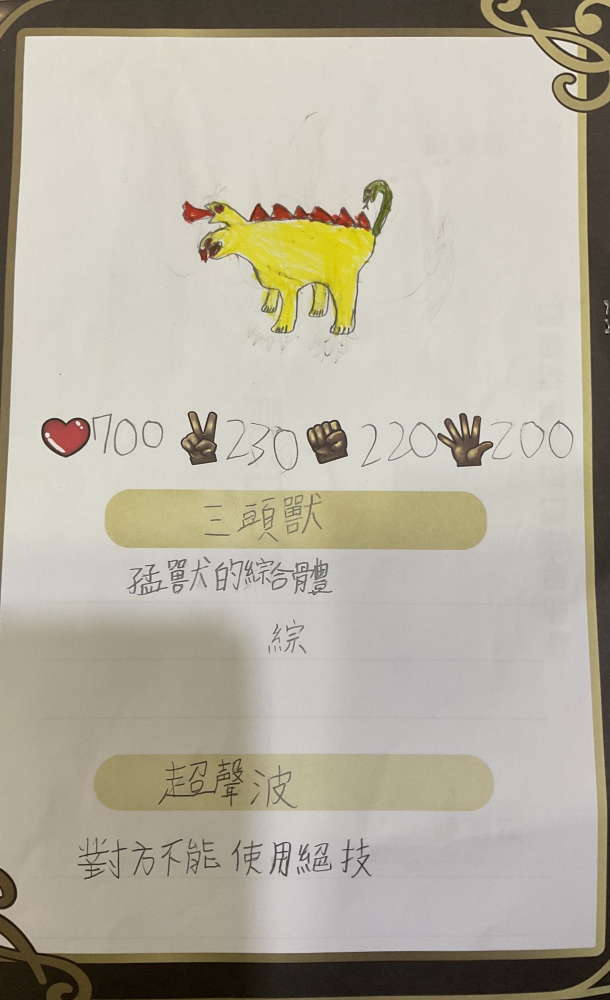 700 230 220 200
三頭獸
孟獸犬的綜合體
綜
超聲波
對方不能使用絕技